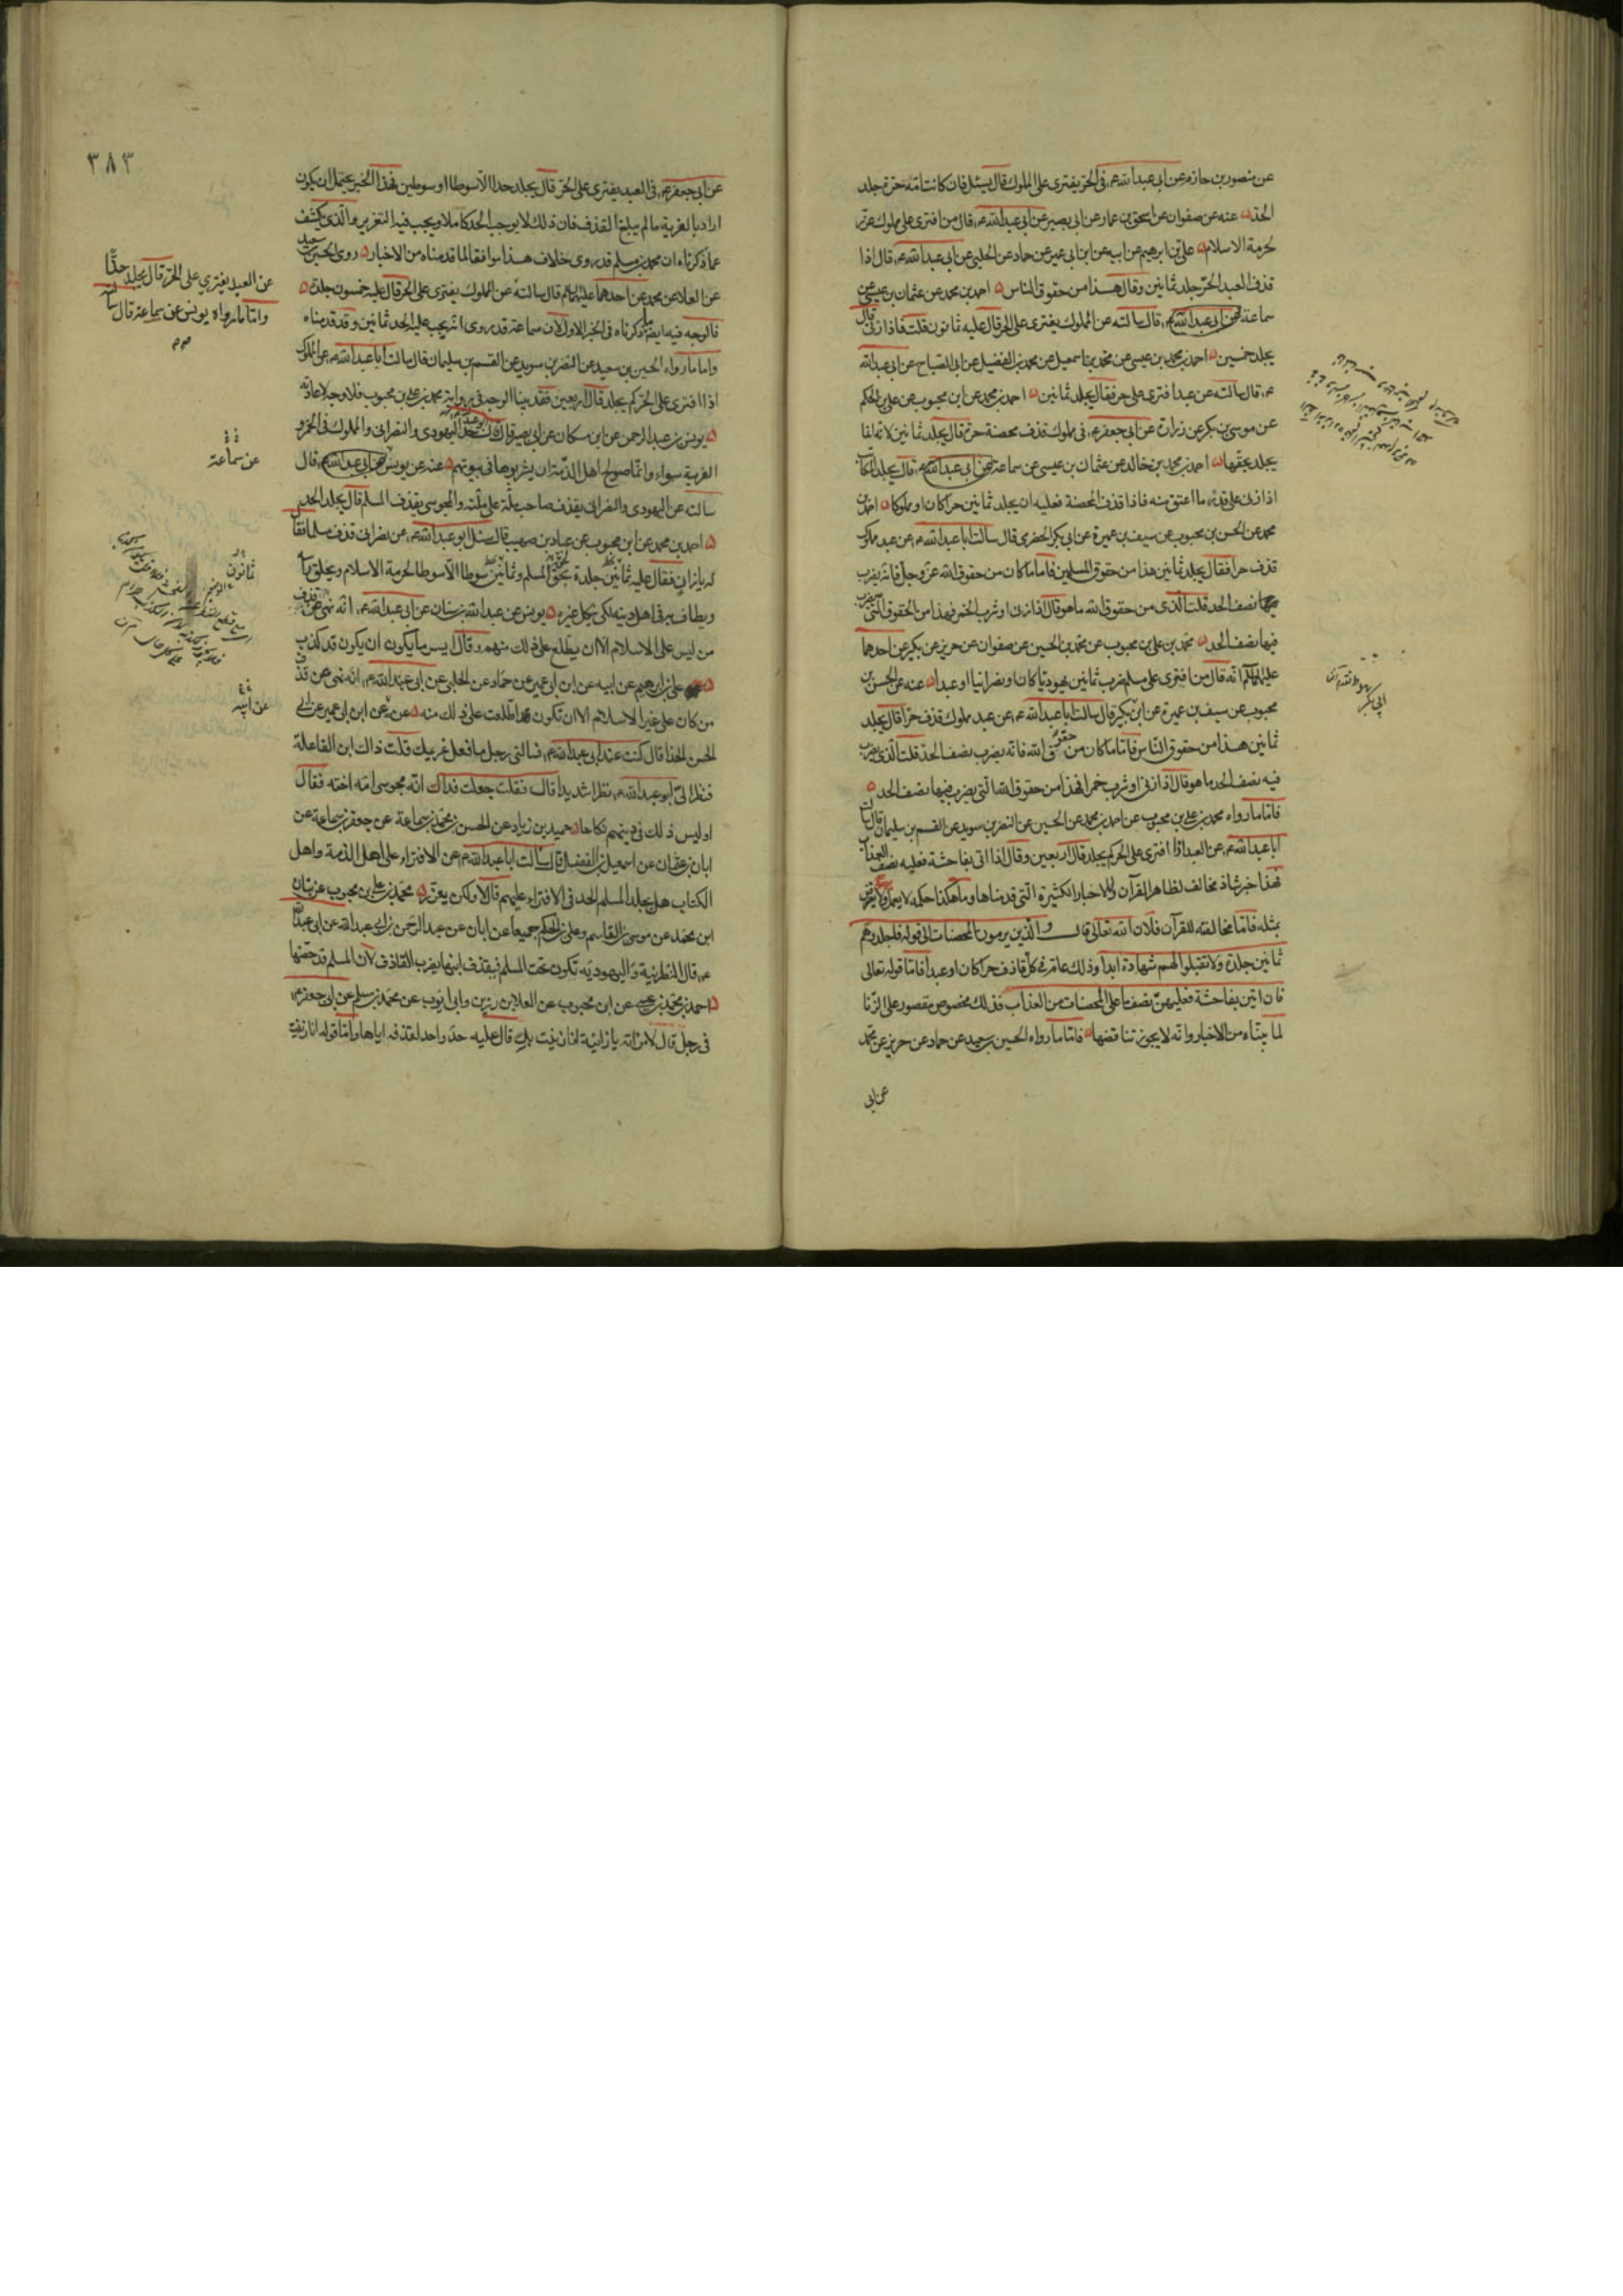 عن منصور بن حازم عن ابى عبد الله ع فى الحر يفترى على المملوك قال يسئل فان كانت امه حرة جلد
الحد عنه عن صفوان عن اسحق بن عمار عن ابى بصير عن ابى عبد الله ع قال من افترى على مملوك عزر
لحرمة الاسلام على بن ابرهيم عن ابيه عن ابن ابى عمير عن حماد عن الحلبى عن ابى عبد الله ع قال اذا
قذف العبد الحر جلد ثمانين وقال هذا من حقوق الناس احمد بن محمد عن عثمان بن عيسى عن
سماعة عن ابى عبد الله ع قال سالته عن المملوك يفترى على الحر قال عليه ثمانون قلت فاذا زنى قال
يجلد خمسين احمد بن محمد بن عيسى عن محمد بن اسمعيل عن محمد بن الفضيل عن ابى الصباح عن ابى عبد الله
ع قال سالته عن عبد افترى على حر فقال يجلد ثمانين احمد بن محمد عن ابن محبوب عن على بن الحكم
عن موسى بن بكر عن زرارة عن ابى جعفر ع فى مملوك قذف محصنة حرة قال يجلد ثمانين لانه انما
يجلد بحقها احمد بن محمد بن خالد عن عثمان بن عيسى عن سماعة عن ابى عبد الله ع قال يجلد المكاتب
اذا زنى على قدر ما اعتق منه فاذا قذف المحصنة فعليه ان يجلد ثمانين حرا كان او مملوكا احمد بن
محمد عن الحسن بن محبوب عن سيف بن عميرة عن ابى بكر الحضرمى قال سالت ابا عبد الله ع عن عبد مملوك
قذف حرا فقال يجلد ثمانين هذا من حقوق المسلمين فاما ما كان من حقوق الله عز وجل فانه يضرب
نصف الحد قلت الذى من حقوق الله ما هو قال اذا زنى او شرب الخمر فهذا من الحقوق التى يضرب
فيها نصف الحد محمد بن على بن محبوب عن محمد بن الحسين عن صفوان عن حريز عن بكير عن احدهما
عليهما السلم انه قال من افترى على مسلم ضرب ثمانين يهوديا كان او نصرانيا او عبدا عنه عن الحسن بن
محبوب عن سيف بن عميرة عن ابن بكير قال سالت ابا عبد الله ع عن عبد مملوك قذف حرا قال يجلد
ثمانين هذا من حقوق الناس فاما ما كان من حقوق الله فانه يضرب نصف الحد قلت الذى يضرب
فيه نصف الحد ما هو قال اذا زنى او شرب خمرا فهذا من حقوق الله التى يضرب فيها نصف الحد
فاما ما رواه محمد بن على بن محبوب عن احمد بن محمد عن الحسين عن النضر بن سويد عن القسم بن سليمان قال سالت
ابا عبد الله ع عن العبد اذا افترى على الحر كم يجلد قال اربعين وقال اذا اتى بفاحشة فعليه نصف العذاب
فهذا خبر شاذ مخالف لظاهر القرآن وللاخبار الكثيرة التى قدمناها وما هكذا حكمه لا يعمل ولا يعترض
بمثله فاما مخالفته للقرآن فلان الله تعالى قال والذين يرمون المحصنات الى قوله فاجلدوهم
ثمانين جلدة ولا تقبلوا لهم شهادة ابدا وذلك عام فى كل قاذف حرا كان او عبدا فاما قوله تعالى
فان اتين بفاحشة فعليهن نصف ما على المحصنات من العذاب فذلك مخصوص مقصور على الزنا
لما بيناه من الاخبار وانه لا يجوز تناقضها فاما ما رواه الحسين بن سعيد عن حماد عن حريز عن محمد
عن ابى
٣٨٣
عن ابى جعفر ع فى العبد يفترى على الحر قال يجلد حدا الا سوطا او سوطين فهذا الخبر يحتمل ان يكون
اراد بالفرية ما لم يبلغ القذف فان ذلك لا يوجب الحد كاملا ويجب فيه التعزير والذى يكشف
عما ذكرناه ان محمد بن مسلم قد روى خلاف هذا موافقا لما قدمناه من الاخبار روى الحسين بن سعيد
عن العلا عن محمد عن احدهما عليهما السلم قال سالته عن المملوك يفترى على الحر قال عليه خمسون جلدة
فالوجه فيه ايضا ما ذكرناه فى الخبر الاول لان سماعة قد روى انه يجب عليه الحد ثمانين وقد قدمناه
واما ما رواه الحسين بن سعيد عن النضر بن سويد عن القسم بن سليمان قال سالت ابا عبد الله ع عن المملوك
اذا افترى على الحر كم يجلد قال اربعين فقد بينا الوجه فى رواية محمد بن على بن محبوب فلا وجه لاعادته
يونس بن عبد الرحمن عن ابن مسكان عن ابى بصير قال قال حد اليهودى والنصرانى والمملوك فى الخمر و
الفرية سواء وانما صولح اهل الذمة ان يشربوها فى بيوتهم عنه عن يونس عن ابى عبد الله ع قال
سالته عن اليهودى والنصرانى يقذف صاحب ملة على ملته والمجوسى يقذف المسلم قال يجلد الحد
احمد بن محمد عن ابن محبوب عن عباد بن صهيب قال سئل ابو عبد الله ع عن نصرانى قذف مسلما فقا
له يا زان فقال عليه ثمانين جلدة بحق المسلم وثمانين سوطا الا سوطا لحرمة الاسلام ويحلق راسه
ويطاف به فى اهل دينه لكى ينكل غيره يونس عن عبد الله بن سنان عن ابى عبد الله ع انه نهى عن قذف
من ليس على الاسلام الا ان يطلع على ذلك منهم وقال ايسر ما يكون ان يكون قد كذب
على بن ابرهيم عن ابيه عن ابن ابى عمير عن حماد عن الحلبى عن ابى عبد الله ع انه نهى عن قذف
من كان على غير الاسلام الا ان تكون قد اطلعت على ذلك منه عنه عن ابن ابى عمير عن ابى
الحسن الحذا قال كنت عند ابى عبد الله ع فسالنى رجل ما فعل غريمك قلت ذاك ابن الفاعلة
فنظر الى ابو عبد الله ع نظرا شديدا قال فقلت جعلت فداك انه مجوسى امه اخته فقال
اوليس ذلك فى دينهم نكاحا حميد بن زياد عن الحسن بن محمد بن سماعة عن جعفر بن سماعة عن
ابان بن عثمان عن اسمعيل بن الفضل قال سالت ابا عبد الله ع عن الافتراء على اهل الذمة واهل
الكتاب هل يجلد المسلم الحد فى الافتراء عليهم قال لا ولكن يعزر محمد بن على بن محبوب عن بنان
ابن محمد عن موسى بن القاسم وعلى بن الحكم جميعا عن ابان عن عبد الرحمن بن ابى عبد الله عن ابى عبد الله
ع قال النصرانية واليهودية تكون تحت المسلم فيقذف ابنها يضرب القاذف لان المسلم قد حصنها
احمد بن محمد بن عيسى عن ابن محبوب عن العلا بن رزين وابى ايوب عن محمد بن مسلم عن ابى جعفر ع
فى رجل قال لامرأته يا زانية انا زنيت بك قال عليه حد واحد لقذفه اياها واما قوله انا زنيت
عن العبد يفتري على الحر قال يجلد حدا
واما ما رواه يونس عن سماعة قال سالته
عن سماعة
ثمانون
عن ابيه